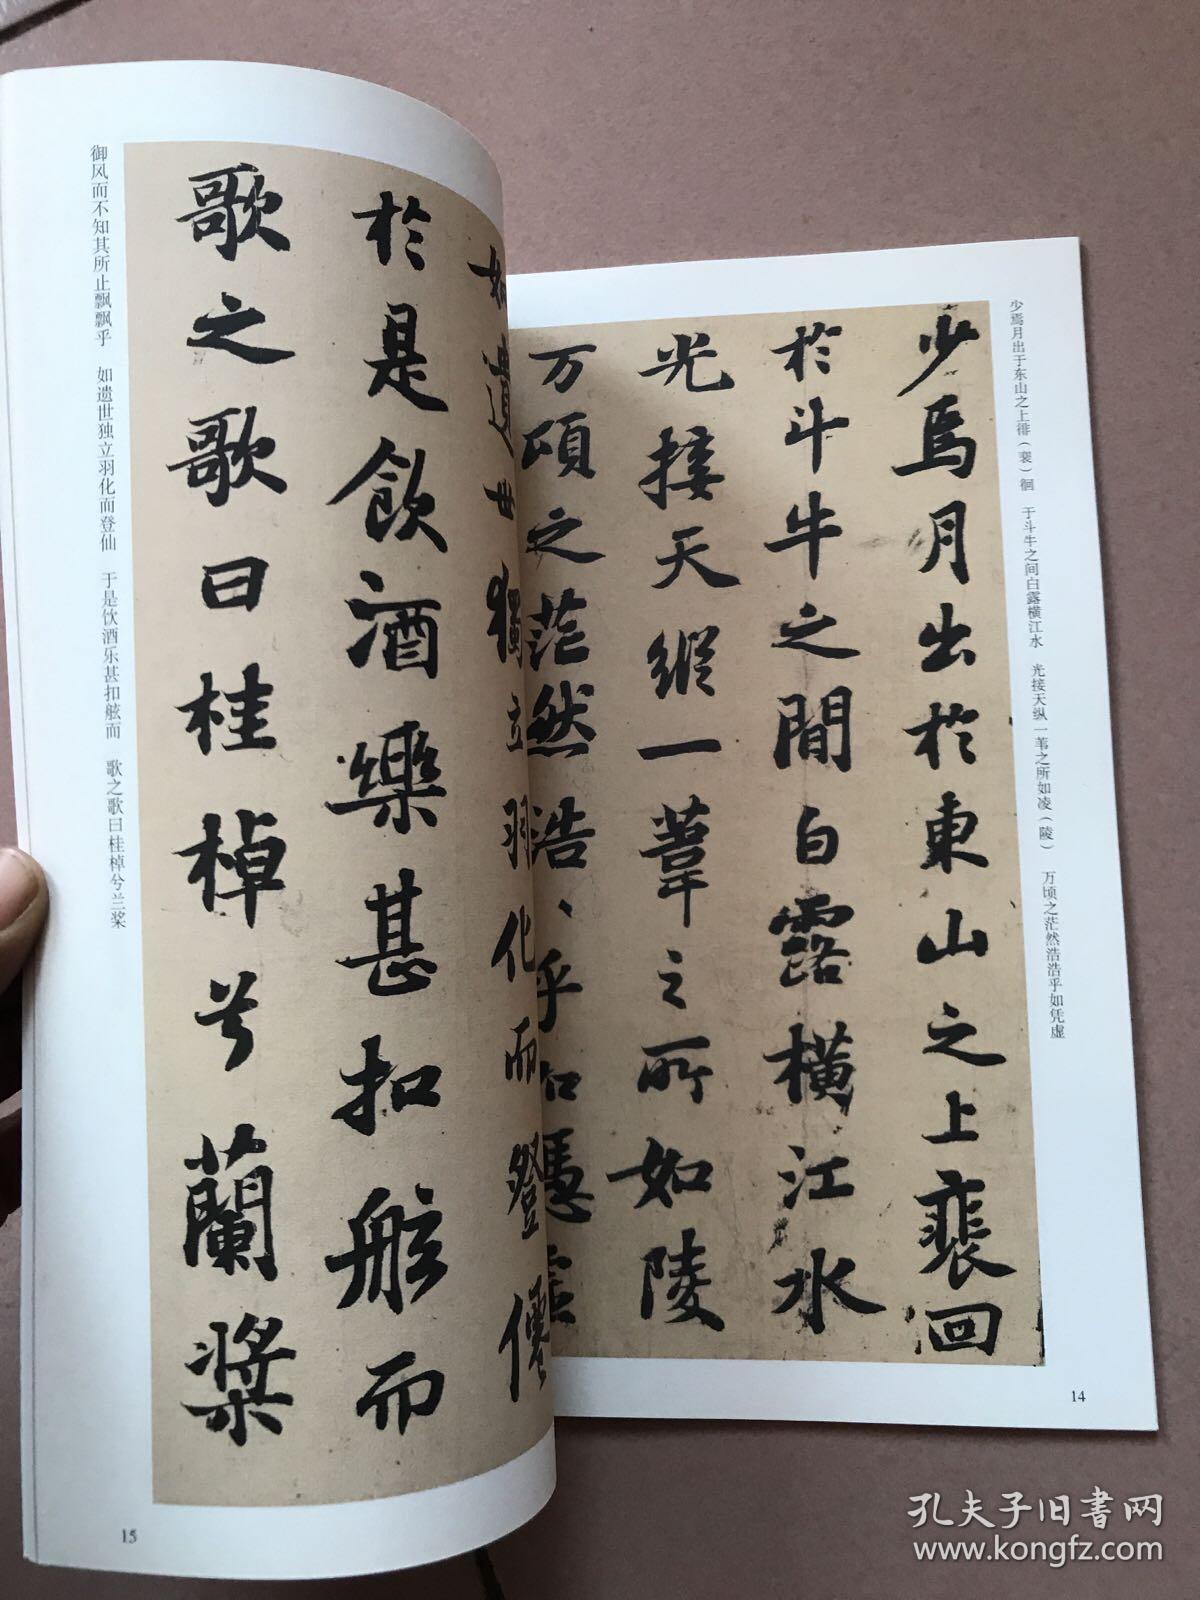 少焉月出于东山之上徘（裴）徊　于斗牛之间白露横江水　光接天纵一苇之所如凌（陵）　万顷之茫然浩浩乎如凭虚
少焉月出於東山之上裴回
於斗牛之間白露橫江水
光接天縱一葦之所如陵
万頃之茫然浩、乎如憑虛
14
如遺世獨立羽化而登僊
於是飲酒樂甚扣舷而
歌之歌曰桂棹兮蘭槳
御风而不知其所止飘飘乎　如遗世独立羽化而登仙　于是饮酒乐甚扣舷而　歌之歌曰桂棹兮兰桨
15
孔夫子旧书网
www.kongfz.com